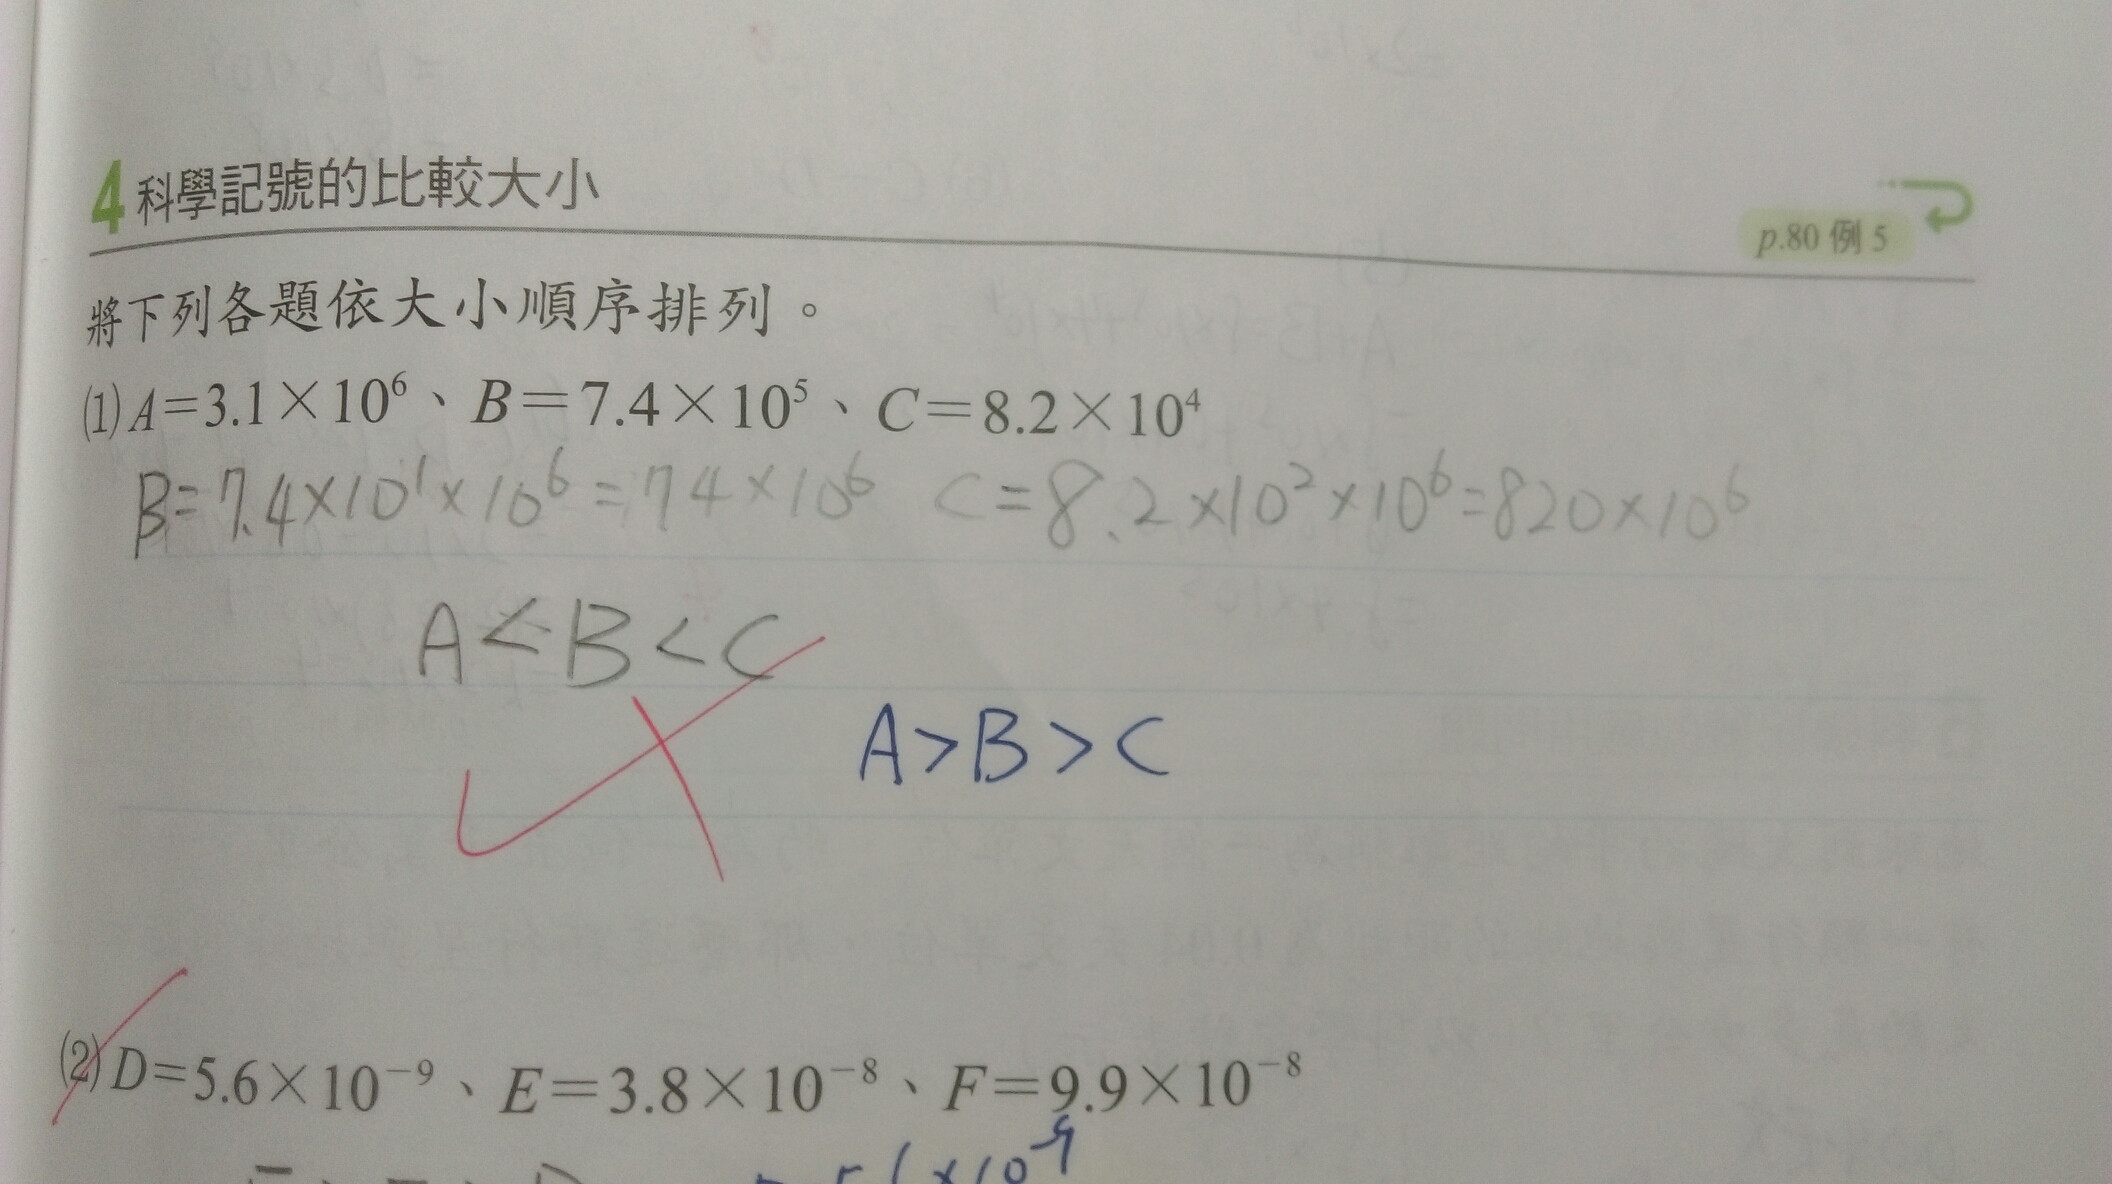 4 科學記號的比較大小
p.80 例 5
將下列各題依大小順序排列。
(1) A=3.1×10⁶、B=7.4×10⁵、C=8.2×10⁴
B=7.4×10¹×10⁶=74×10⁶ C=8.2×10²×10⁶=820×10⁶
A<B<C
A>B>C
(2) D=5.6×10⁻⁹、E=3.8×10⁻⁸、F=9.9×10⁻⁸
×10⁻⁹